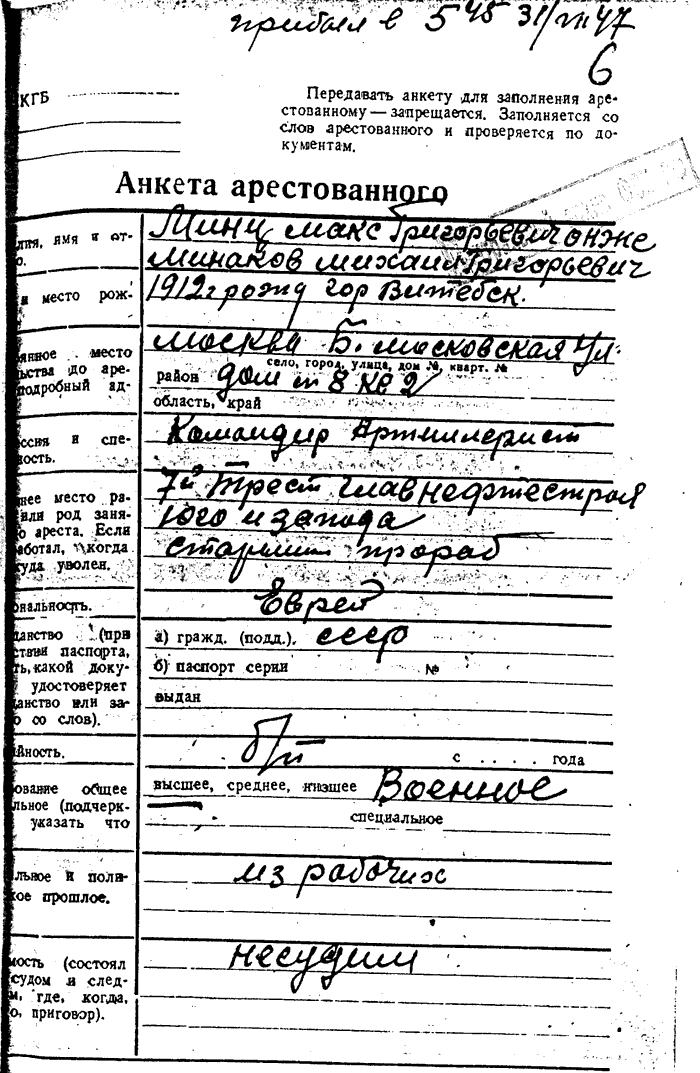 прибыл в 5 45 31/VII 47
6
КГБ
Передавать анкету для заполнения аре-
стованному — запрещается. Заполняется со
слов арестованного и проверяется по до-
кументам.
Анкета арестованного
лия, имя и от-
о.
Минц Макс Григорьевич он же
Минаков Михаил Григорьевич
и место рож-
1912 г рожд гор Витебск.
янное место
ьства до аре-
подробный ад-
Москва Б. Московская ул.
село, город, улица, дом №, кварт. №
район дом № 8 кв 2
область, край
ссия и спе-
ность.
Командир Артиллерист
нее место ра-
или род заня-
о ареста. Если
аботал, когда
куда уволен.
7й Трест Главнефтестроя
юго и запада
старший прораб
ональность.
Еврей
данство (при
ствии паспорта,
ть, какой доку-
удостоверяет
данство или за-
о со слов).
а) гражд. (подд.). СССР
б) паспорт серии №
выдан
йность.
б/п
с . . . . . года
ование общее
льное (подчерк-
указать что
высшее, среднее, низшее Военное
специальное
льное и поли-
кое прошлое.
из рабочих
мость (состоял
судом и след-
м, где, когда,
о, приговор).
несудим